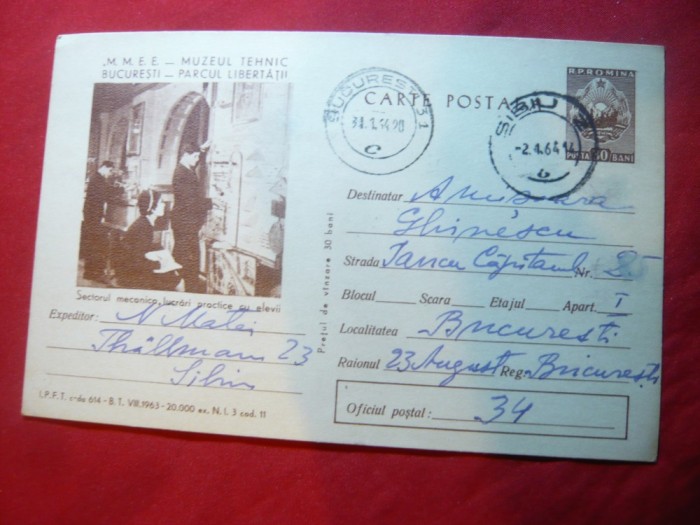 „M. M. E. E. — MUZEUL TEHNIC
BUCUREȘTI — PARCUL LIBERTĂȚII
Sectorul mecanica lucrări practice cu elevii
Expeditor: N Matei
Thällmann 23
Sibiu
I.P.F.T. c-da 614 - B.T. VIII.1963 - 20.000 ex. N.I. 3 cod. 11
Prețul de vînzare 30 bani
BUCUREȘTI 31
CARTE POSTA
SIBIU
-2.1.64.14
b
R.P.ROMINA
POSTA 30 BANI
Destinatar
Ghinescu
Strada Iancu Căpitanul Nr.
Blocul Scara Etajul Apart. I
Localitatea București
Raionul 23 August Reg. București
Oficiul poștal: 34